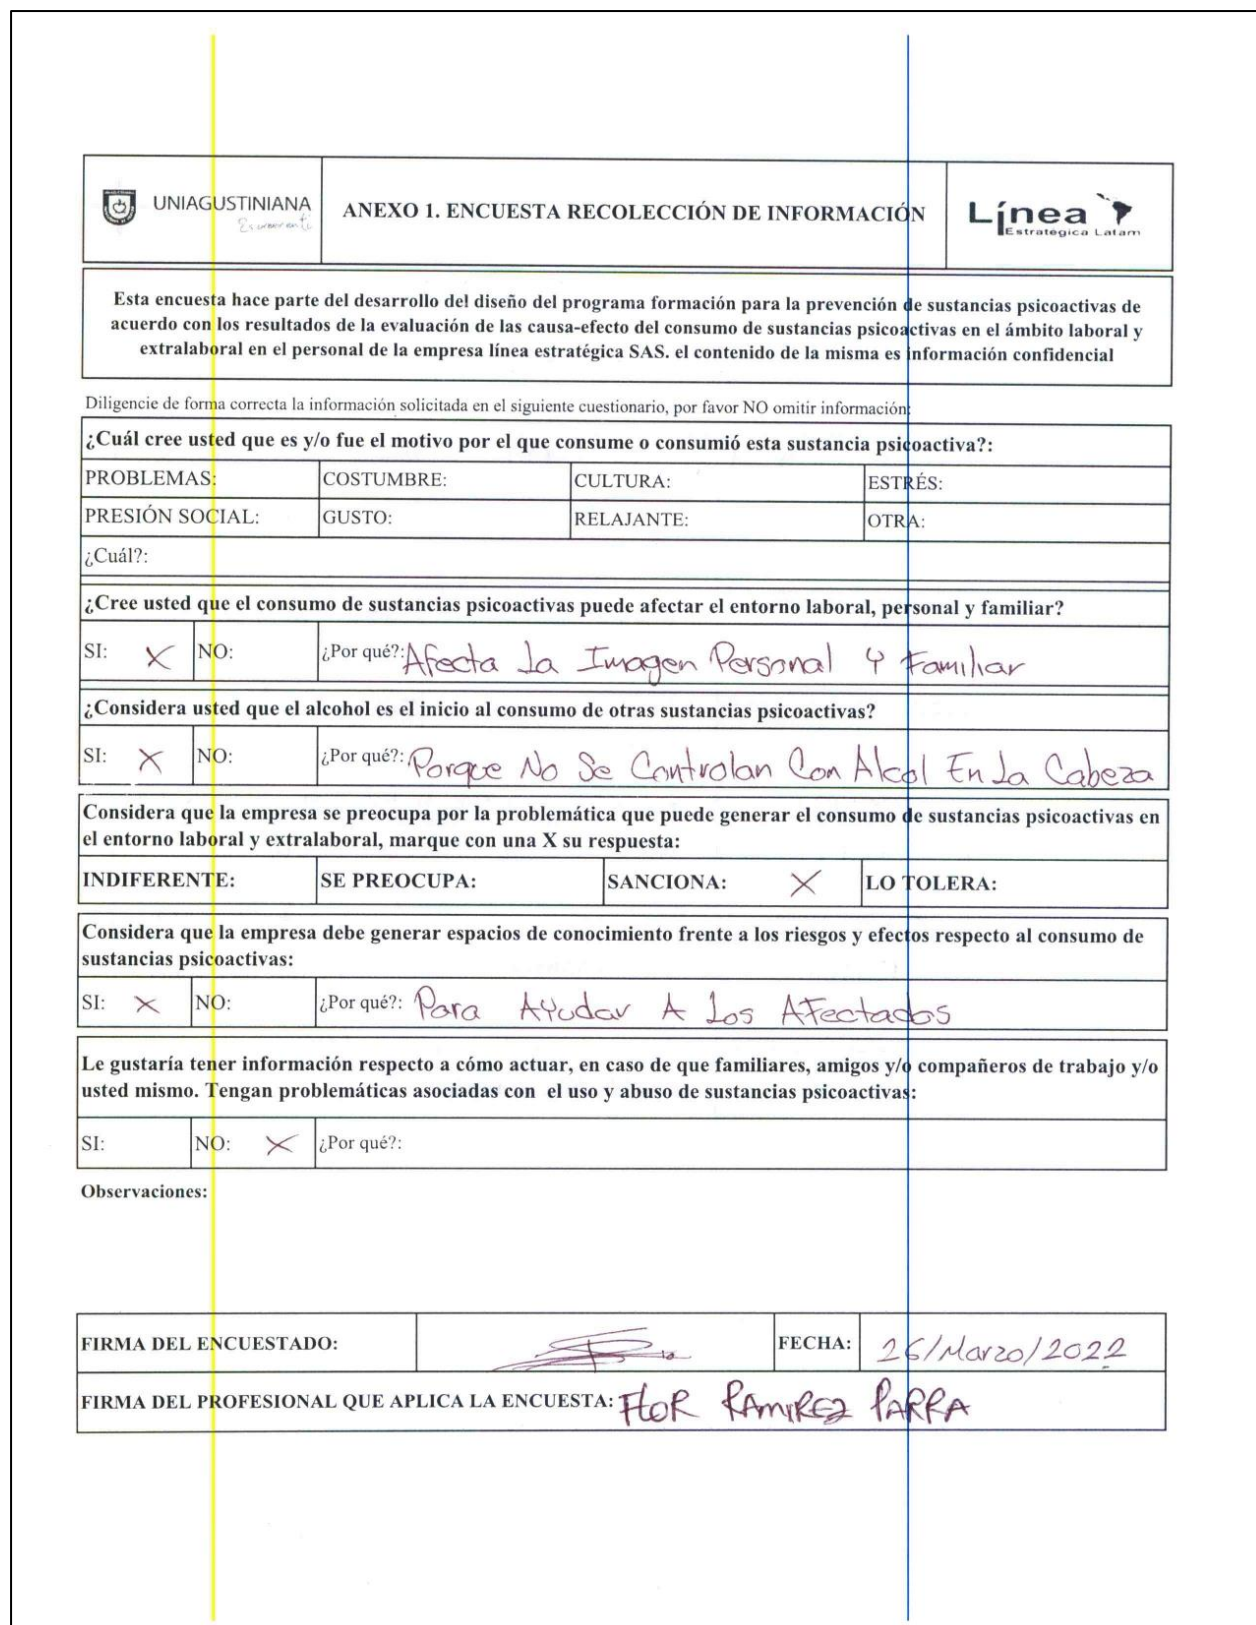 UNIAGUSTINIANA
ANEXO 1. ENCUESTA RECOLECCIÓN DE INFORMACIÓN
Línea
Estratégica Latam
Esta encuesta hace parte del desarrollo del diseño del programa formación para la prevención de sustancias psicoactivas de
acuerdo con los resultados de la evaluación de las causa-efecto del consumo de sustancias psicoactivas en el ámbito laboral y
extralaboral en el personal de la empresa línea estratégica SAS. el contenido de la misma es información confidencial
Diligencie de forma correcta la información solicitada en el siguiente cuestionario, por favor NO omitir información:
¿Cuál cree usted que es y/o fue el motivo por el que consume o consumió esta sustancia psicoactiva?:
PROBLEMAS: COSTUMBRE: CULTURA: ESTRÉS:
PRESIÓN SOCIAL: GUSTO: RELAJANTE: OTRA:
¿Cuál?:
¿Cree usted que el consumo de sustancias psicoactivas puede afectar el entorno laboral, personal y familiar?
SI: X NO: ¿Por qué?: Afecta La Imagen Personal Y Familiar
¿Considera usted que el alcohol es el inicio al consumo de otras sustancias psicoactivas?
SI: X NO: ¿Por qué?: Porque No Se Controlan Con Alcol En La Cabeza
Considera que la empresa se preocupa por la problemática que puede generar el consumo de sustancias psicoactivas en
el entorno laboral y extralaboral, marque con una X su respuesta:
INDIFERENTE: SE PREOCUPA: SANCIONA: X LO TOLERA:
Considera que la empresa debe generar espacios de conocimiento frente a los riesgos y efectos respecto al consumo de
sustancias psicoactivas:
SI: X NO: ¿Por qué?: Para AYudar A Los AFectados
Le gustaría tener información respecto a cómo actuar, en caso de que familiares, amigos y/o compañeros de trabajo y/o
usted mismo. Tengan problemáticas asociadas con el uso y abuso de sustancias psicoactivas:
SI: NO: X ¿Por qué?:
Observaciones:
FIRMA DEL ENCUESTADO: FECHA: 26/Marzo/2022
FIRMA DEL PROFESIONAL QUE APLICA LA ENCUESTA: FLOR RAMIREZ PARRA